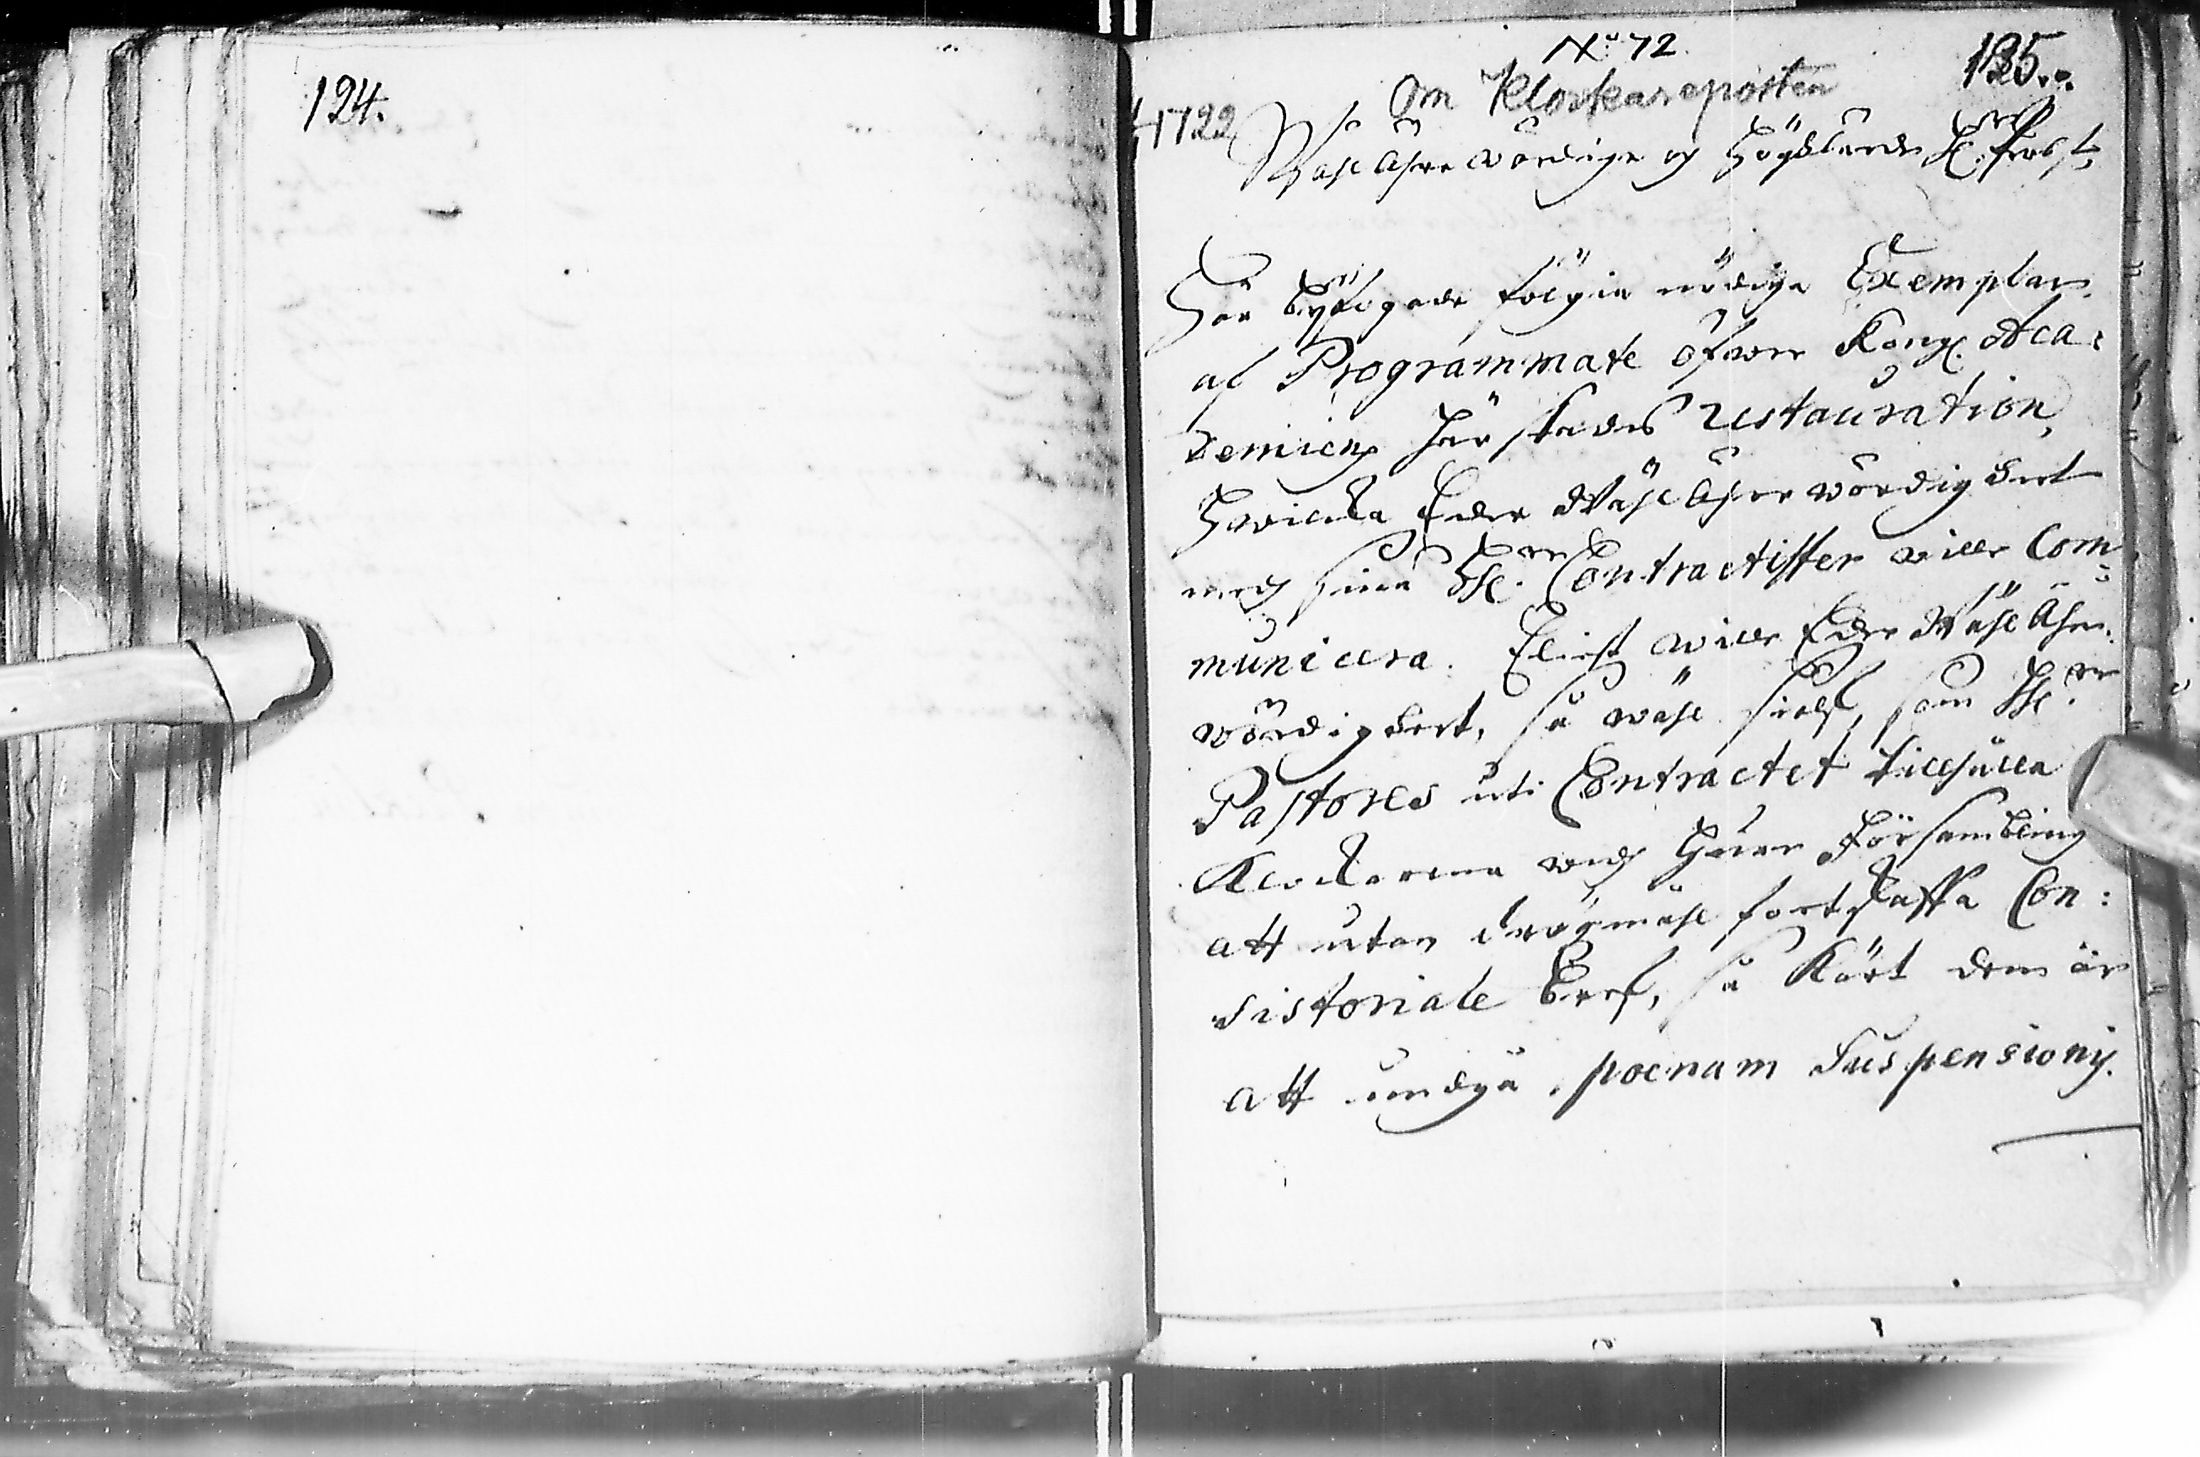 124.
N:o 72
125.
Om Klockareposten
1722
Wähl Ährewördige og Höglärde H. Probst,
Här byfogade följia nödige Exemplar
af Programmate öfwer Kongl. Aca:
demiens här stades restauration,
Hwilcka Eder Wähl Ährewördigheet
med sina HH. Contractister wille Com:
municera. Eliest wille Eder Wähl Ähre:
wördigheet, så wähl sielf, som HH.
Pastores uti Contractet tillhålla
Klockarena wid hwar Försambling
att utan dröysmåhl fortskaffa Con:
sistoriale bref, så Kärt dem är
att undgå poenam Suspensionis.